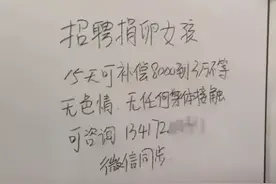 招聘捐卵女孩
15天可补偿8000到3万不等
无色情、无任何身体接触
可咨询 134172
微信同步